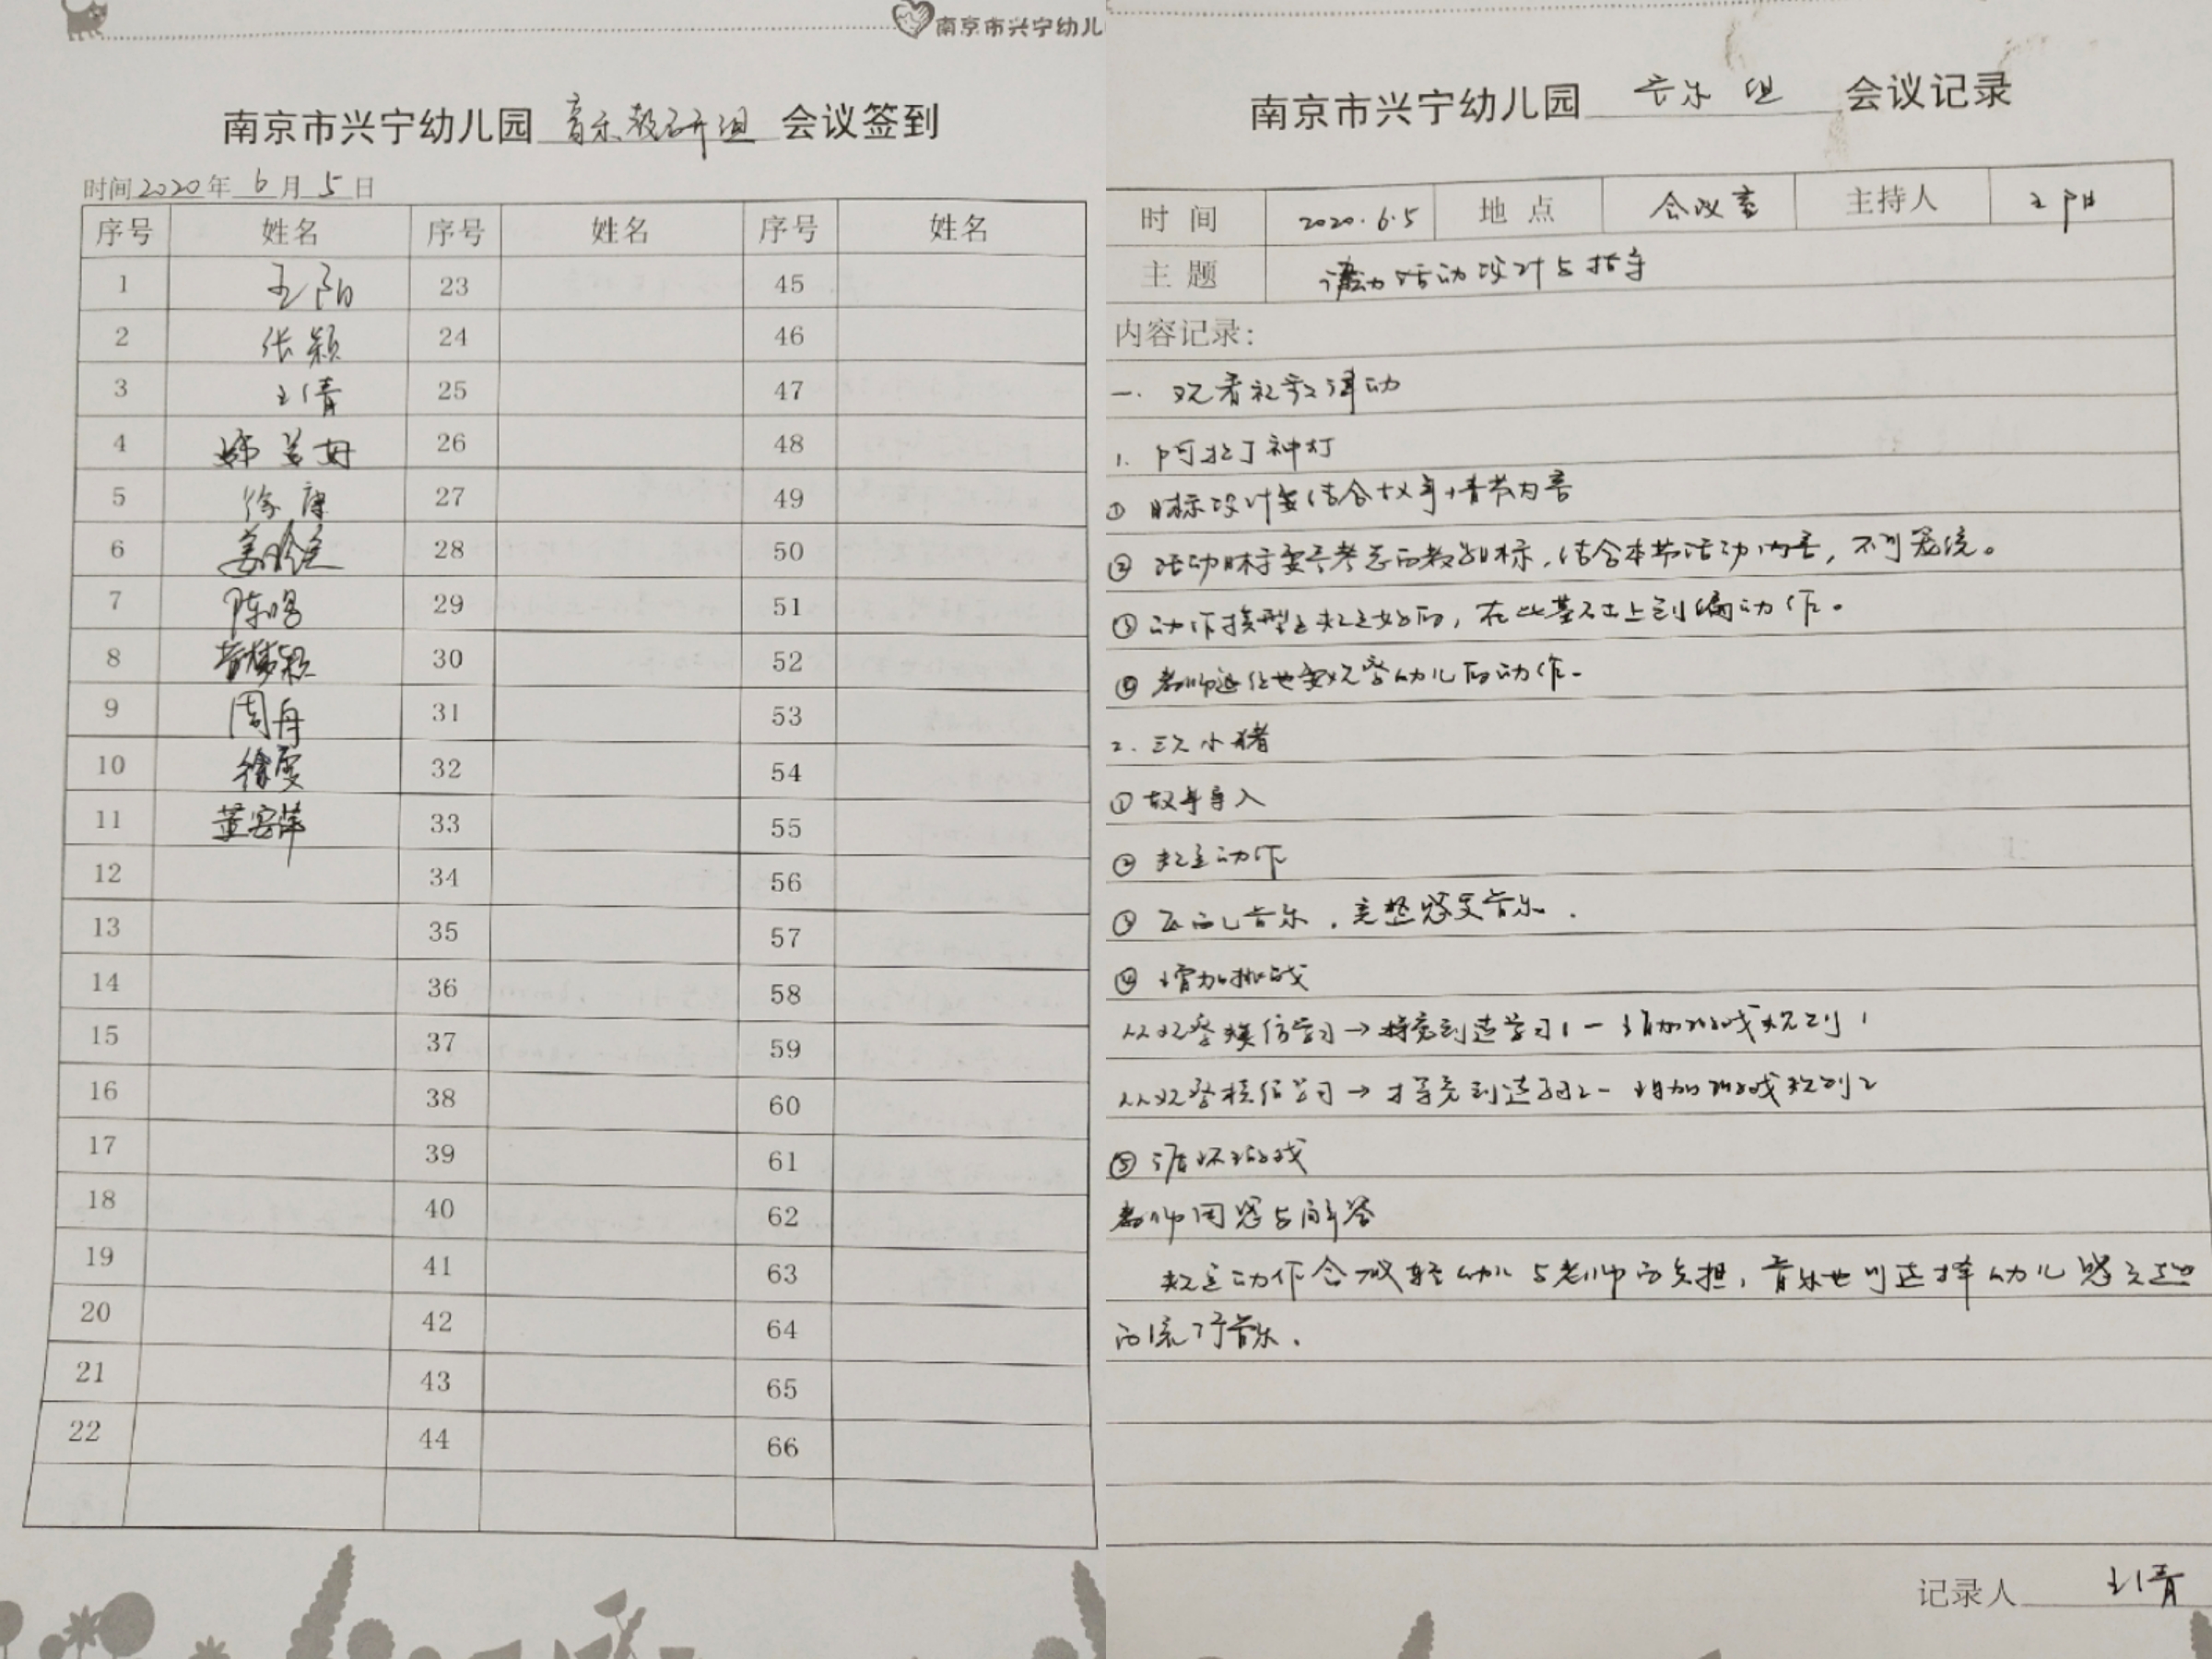 南京市兴宁幼儿
南京市兴宁幼儿园 音乐教研组 会议签到
时间 2020 年 6 月 5 日
序号 姓名 序号 姓名 序号 姓名
1 王阳 23 45
2 张颖 24 46
3 王倩 25 47
4 26 48
5 徐康 27 49
6 姜 28 50
7 陈鸣 29 51
8 30 52
9 周舟 31 53
10 徐雯 32 54
11 董安萍 33 55
12 34 56
13 35 57
14 36 58
15 37 59
16 38 60
17 39 61
18 40 62
19 41 63
20 42 64
21 43 65
22 44 66
南京市兴宁幼儿园 音乐组 会议记录
时间 2020.6.5 地点 会议室 主持人 王阳
主题 律动活动设计与指导
内容记录:
一. 观看视频律动
1. 阿拉丁神灯
① 目标设计要结合故事情节内容
② 活动目标要参考总的教学目标,结合本节活动内容,不则笼统。
③ 动作模型是规定好的,在此基础上创编动作。
④ 教师退位也要观察幼儿的动作.
2. 三只小猪
① 故事导入
② 规定动作
③ 匹配音乐,完整感受音乐.
④ 增加挑战
从观察模仿学习→探究创造学习1 — 增加游戏规则1
从观察模仿学习→探究创造学习2 — 增加游戏规则2
⑤ 循环游戏
教师困惑与解答
规定动作会减轻幼儿与老师的负担,音乐也可选择幼儿感兴趣
的流行音乐.
记录人 王倩